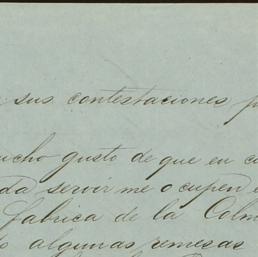 sus contestaciones p
ucho gusto de que en c
da servirme o ocupen e
fabrica de la Colm
algunas remesas